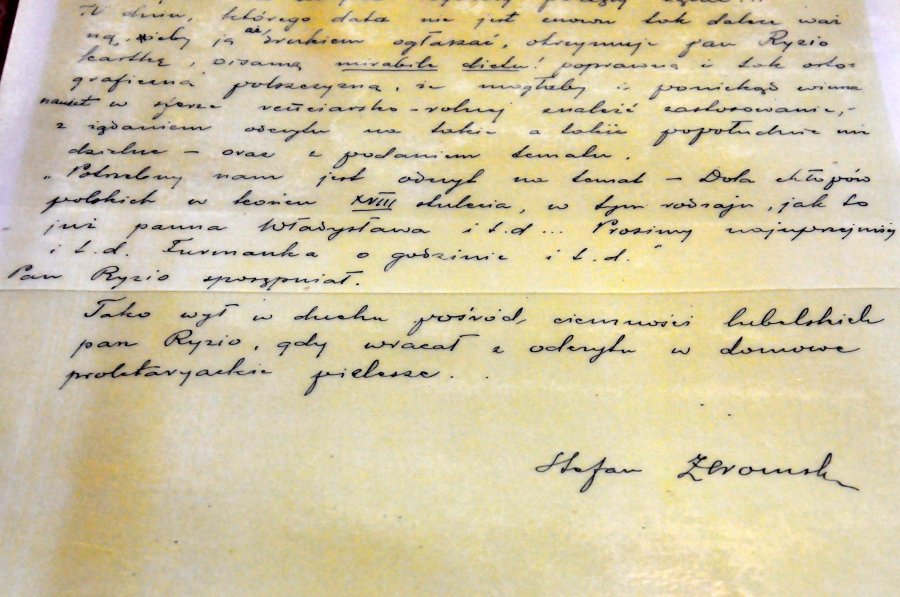 W dniu, którego data nie jest znowu tak dalece waż
ną, żeby ją aż drukiem ogłaszać, otrzymuje pan Ryzio
kartkę, pisaną mirabile dictu! poprawną i tak orto-
graficzną polszczyzną, że mogłaby i poniekąd winna
nawet w sferze kuncjarsko-rolnej znaleźć zastosowanie,-
z żądaniem odczytu na takie a takie popołudnie nie
dzielne - oraz z podaniem tematu.
"Potrzebny nam jest odczyt na temat - Dola chłopów
polskich w końcu XVIII stulecia, w tym rodzaju, jak to
już panna Władysława i t.d... Prosimy najuprzejmiej
i t.d. Furmanka o godzinie i t.d."
Pan Ryzio sposępniał.
Tako wył w duchu pośród ciemności lubelskich
pan Ryzio, gdy wracał z odczytu w domowe
proletaryackie pielesze...
Stefan Żeromski